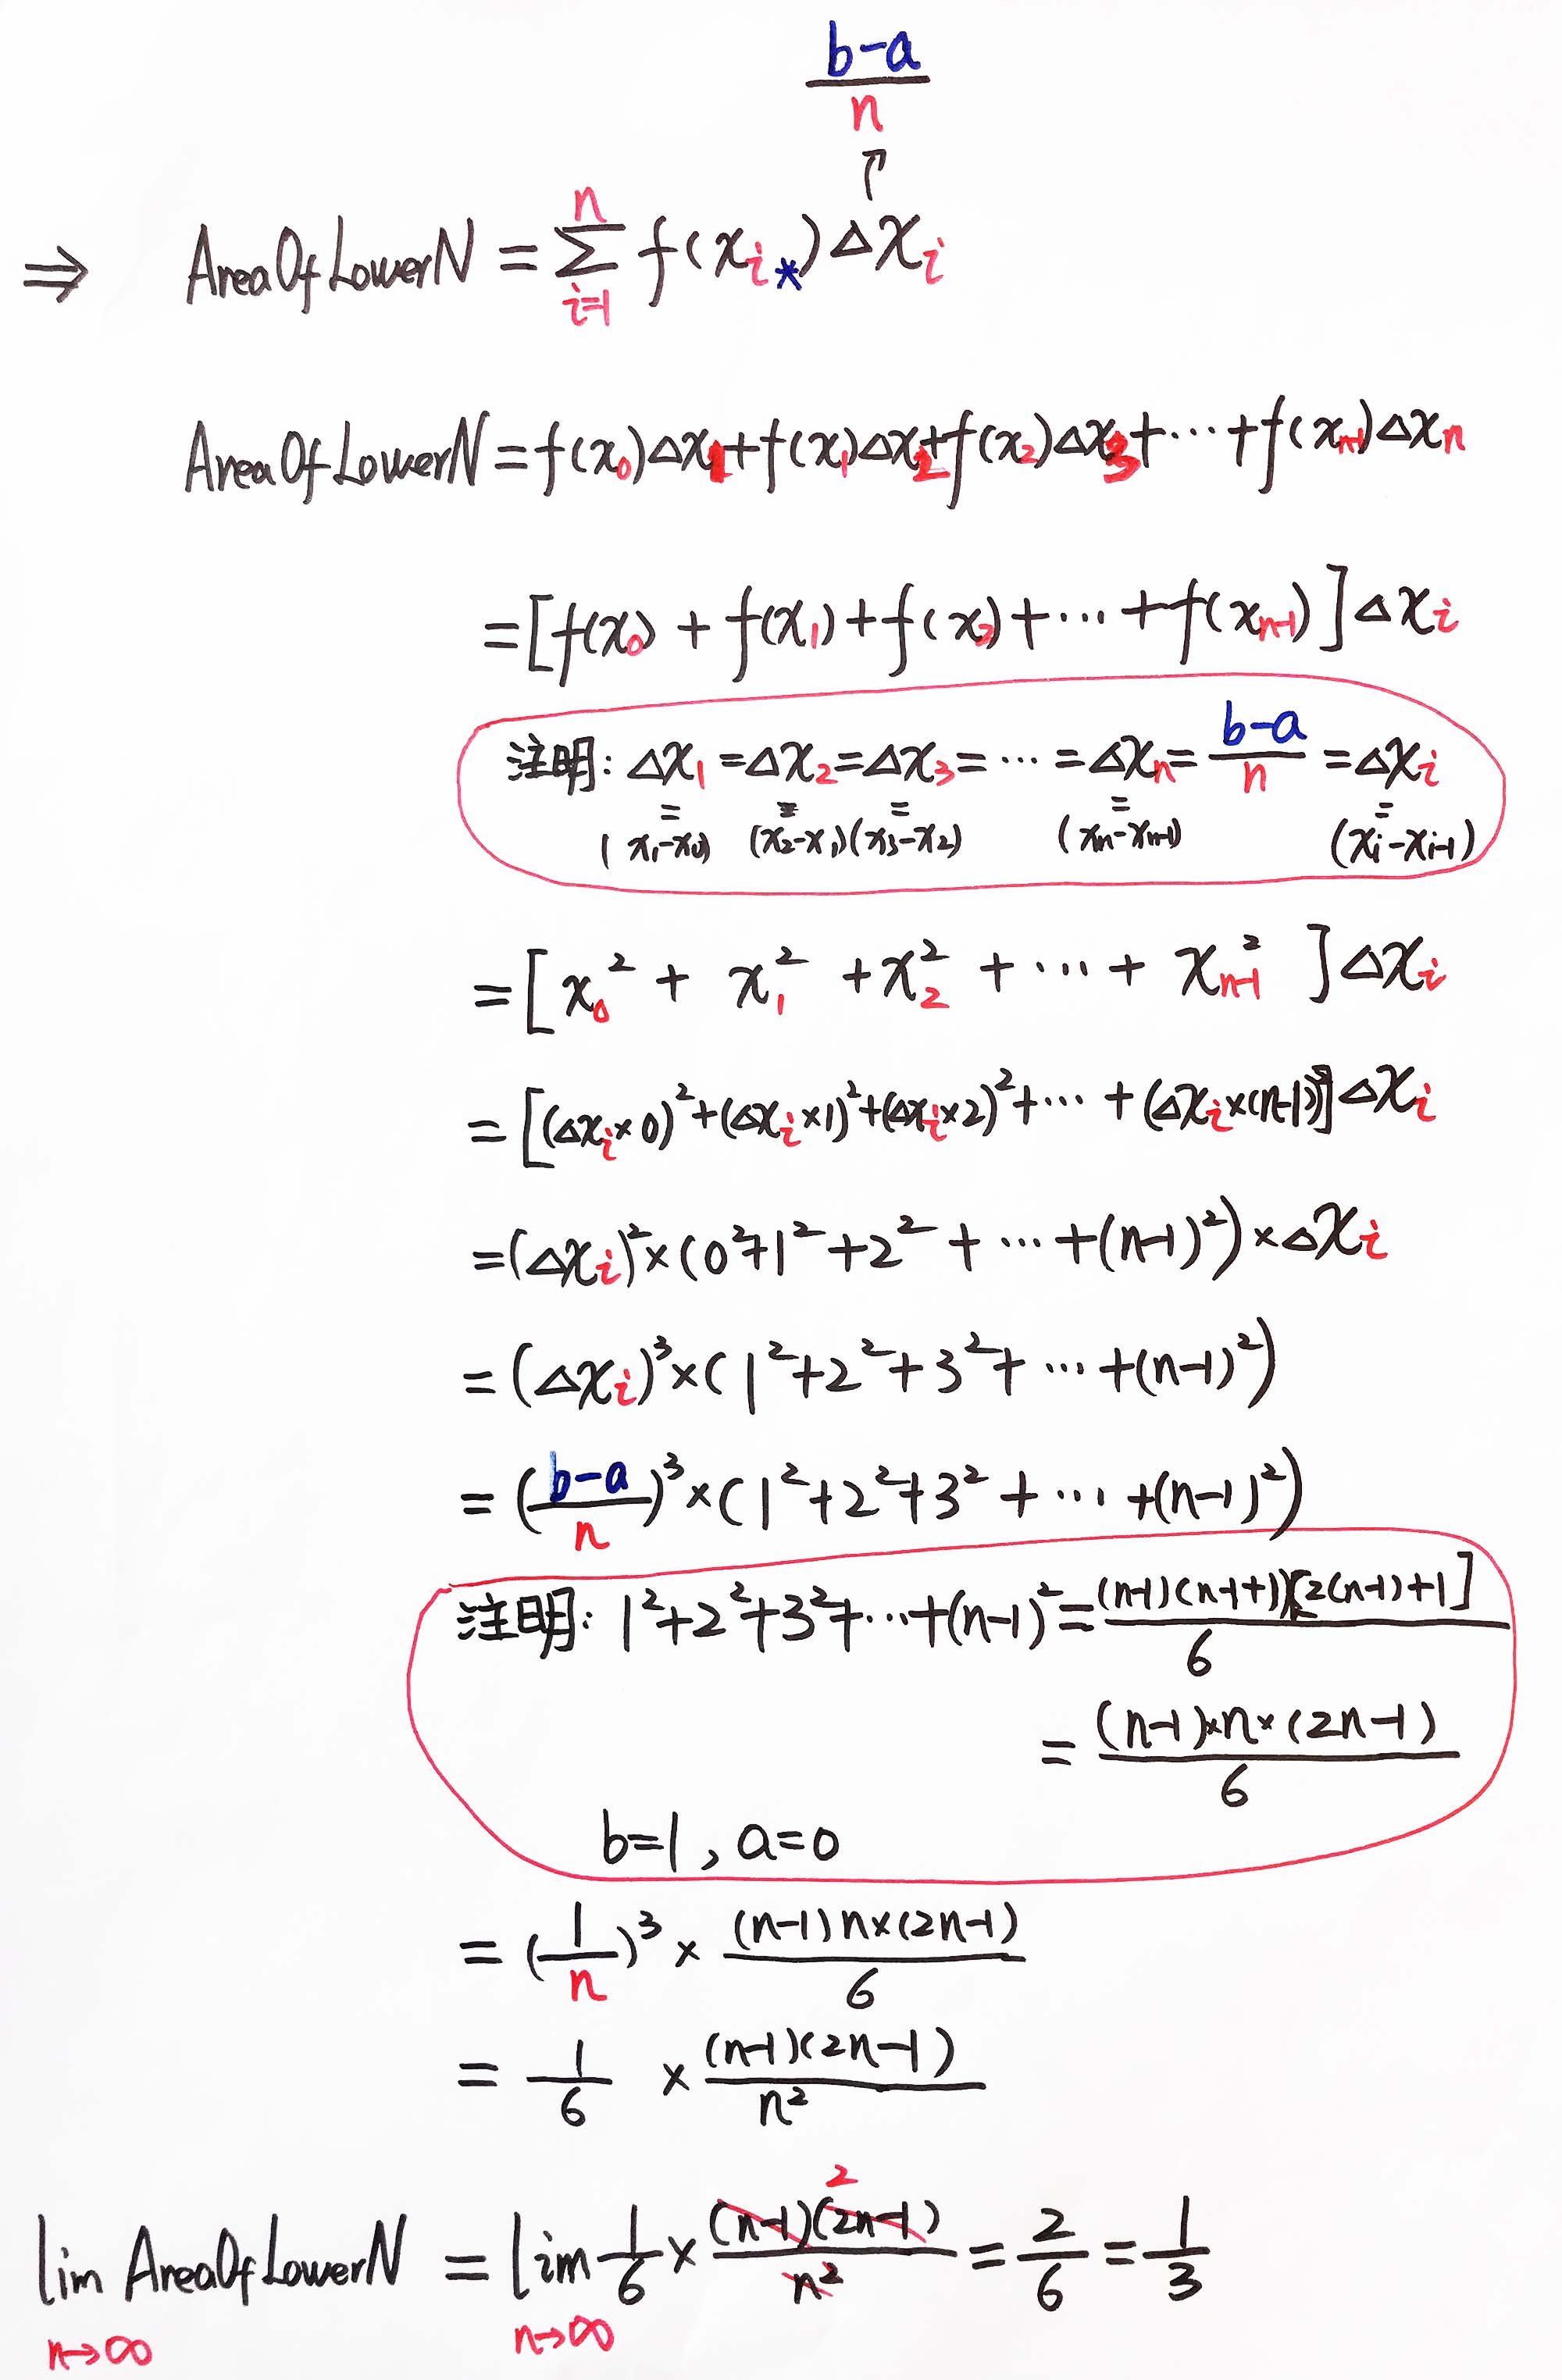 b-a
n
↑
⇒ AreaOfLowerN = Σ f(xᵢ*)Δxᵢ
n
i=1
AreaOfLowerN = f(x₀)Δx₁+f(x₁)Δx₂+f(x₂)Δx₃+⋯+f(xₙ₋₁)Δxₙ
=[f(x₀) + f(x₁)+f(x₂)+⋯+f(xₙ₋₁)]Δxᵢ
注明: Δx₁=Δx₂=Δx₃=⋯=Δxₙ=(b-a)/n=Δxᵢ
= = = = =
(x₁-x₀) (x₂-x₁)(x₃-x₂) (xₙ-xₙ₋₁) (xᵢ-xᵢ₋₁)
=[x₀² + x₁² + x₂² + ⋯ + xₙ₋₁²]Δxᵢ
=[(Δxᵢ×0)²+(Δxᵢ×1)²+(Δxᵢ×2)²+⋯+(Δxᵢ×(n-1))²]Δxᵢ
=(Δxᵢ)²×(0²+1²+2²+⋯+(n-1)²)×Δxᵢ
=(Δxᵢ)³×(1²+2²+3²+⋯+(n-1)²)
=((b-a)/n)³×(1²+2²+3²+⋯+(n-1)²)
注明: 1²+2²+3²+⋯+(n-1)²=(n-1)(n-1+1)[2(n-1)+1]/6
= (n-1)×n×(2n-1)/6
b=1, a=0
= (1/n)³ × (n-1)n×(2n-1)/6
= 1/6 × (n-1)(2n-1)/n²
2
lim AreaOfLowerN = lim 1/6 × (n-1)(2n-1)/n² = 2/6 = 1/3
n→∞ n→∞